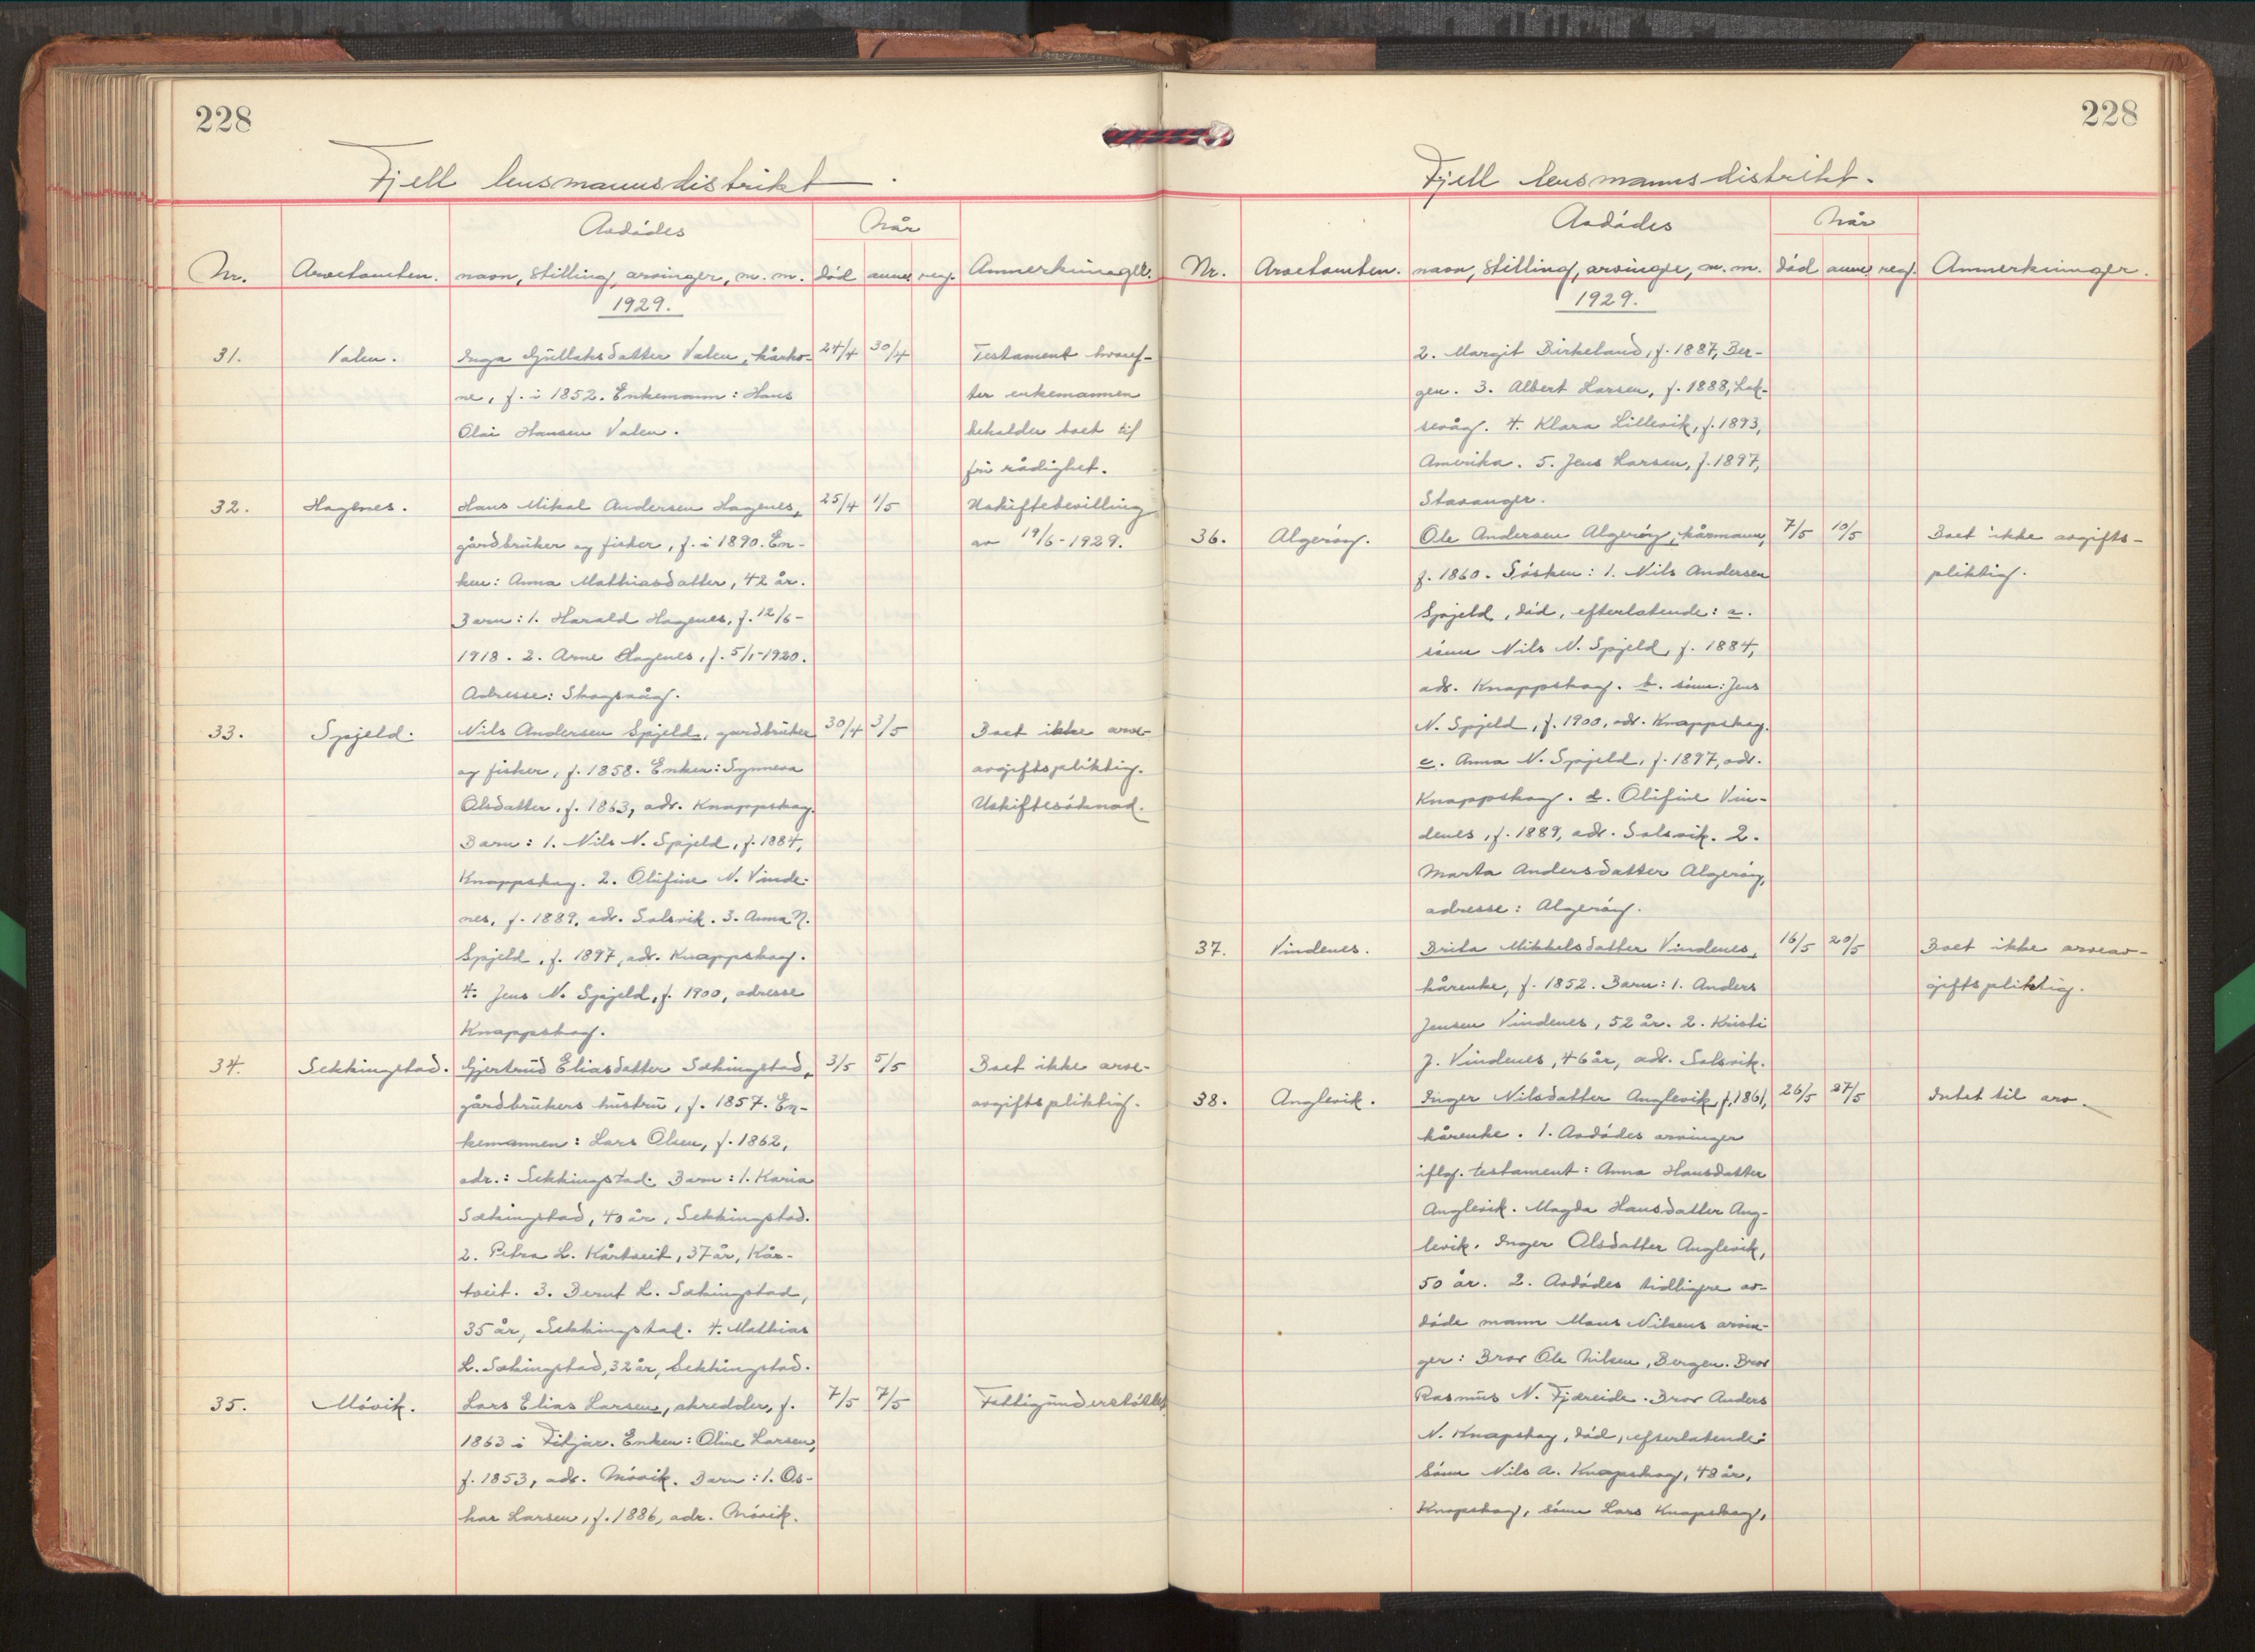 228
Fjell lensmannsdistrikt.
Avdødes
Når
Nr.
Arvetomten.
navn, stilling, arvinger, m. m.
død
anm.
reg.
Anmerkninger.
1929.
31.
Valen.
Inga Gjullaksdatter Valen, kårko-
24/4
30/4
Testament hvoref-
ne, f. i 1852. Enkemann: Hans
ter enkemannen
Olai Hansen Valen.
beholder boet til
fri rådighet.
32.
Hagenes.
Hans Mikal Andersen Hagenes,
25/4
1/5
Uskiftebevilling
gårdbruker og fisker, f. i 1890. En-
av 19/6-1929.
ken: Anna Mathiasdatter, 42 år.
Barn: 1. Harald Hagenes, f. 12/6-
1918. 2. Arne Hagenes, f. 5/1-1920.
Adresse: Skogsvåg.
33.
Spjeld.
Nils Andersen Spjeld, gardbruker
30/4
3/5
Boet ikke arve-
og fisker, f. 1858. Enken: Synneva
avgiftspliktig.
Olsdatter, f. 1863, adr. Knappskog.
Uskiftesøknad.
Barn: 1. Nils N. Spjeld, f. 1884,
Knappskog. 2. Olufine N. Vinde-
nes, f. 1889, adr. Solsvik. 3. Anna N.
Spjeld, f. 1897, adr. Knappskog.
4. Jens N. Spjeld, f. 1900, adresse
Knappskog.
34.
Sekkingstad.
Gjertrud Eliasdatter Sækingstad,
3/5
5/5
Boet ikke arve-
gårdbrukers hustru, f. 1857. En-
avgiftspliktig.
kemannen: Lars Olsen, f. 1862,
adr.: Sekkingstad. Barn: 1. Karia
Sækingstad, 40 år, Sekkingstad.
2. Petra L. Kårtveit, 37 år, Kår-
tveit. 3. Bernt L. Sækingstad,
35 år, Sekkingstad. 4. Mathias
L. Sækingstad, 32 år, Sekkingstad.
35.
Móvik.
Lars Elias Larsen, skredder, f.
7/5
7/5
Fattigunderstøttet
1863 i Fitjar. Enken: Oline Larsen,
f. 1853, adr. Móvik. Barn: 1. Os-
kar Larsen, f. 1886, adr. Móvik.
228
Fjell lensmannsdistrikt.
Avdødes
Når
Nr.
Arvetomten.
navn, stilling, arvinger, m. m.
død
anm.
reg.
Anmerkninger.
1929.
2. Margit Birkeland, f. 1887, Ber-
gen. 3. Albert Larsen, f. 1888, Lak-
sevåg. 4. Klara Lillevik, f. 1893,
Amerika. 5. Jens Larsen, f. 1897,
Stavanger.
36.
Algerøy.
Ole Andersen Algerøy, kårmann,
7/5
10/5
Boet ikke avgifts-
f. 1860. Søsken: 1. Nils Andersen
pliktig.
Spjeld, død, efterlatende: a.
sønn Nils N. Spjeld, f. 1884,
adr. Knappskog. b. sønn: Jens
N. Spjeld, f. 1900, adr. Knappskog.
c. Anna N. Spjeld, f. 1897, adr.
Knappskog. d. Olufine Vin-
denes, f. 1889, adr. Solsvik. 2.
Marta Andersdatter Algerøy,
adresse: Algerøy.
37.
Vindenes.
Brita Mikkelsdatter Vindenes,
16/5
20/5
Boet ikke arveav-
kårenke, f. 1852. Barn: 1. Anders
giftspliktig.
Jensen Vindenes, 52 år. 2. Kristi
J. Vindenes, 46 år, adr. Solsvik.
38.
Anglevik.
Inger Nilsdatter Anglevik, f. 1861,
26/5
27/5
Intet til arv.
kårenke. 1. Avdødes arvinger
iflg. testament: Anna Hansdatter
Anglevik. Magda Hansdatter Ang-
levik. Inger Olsdatter Anglevik,
50 år. 2. Avdødes tidligere av-
døde mann Mons Nilsens arvin-
ger: Bror Ole Nilsen, Bergen. Bror
Rasmus N. Fjæreide. Bror Anders
N. Knapskog, død, efterlatende:
Sønn Nils A. Knapskog, 48 år,
Knapskog, sønn Lars Knapskog,